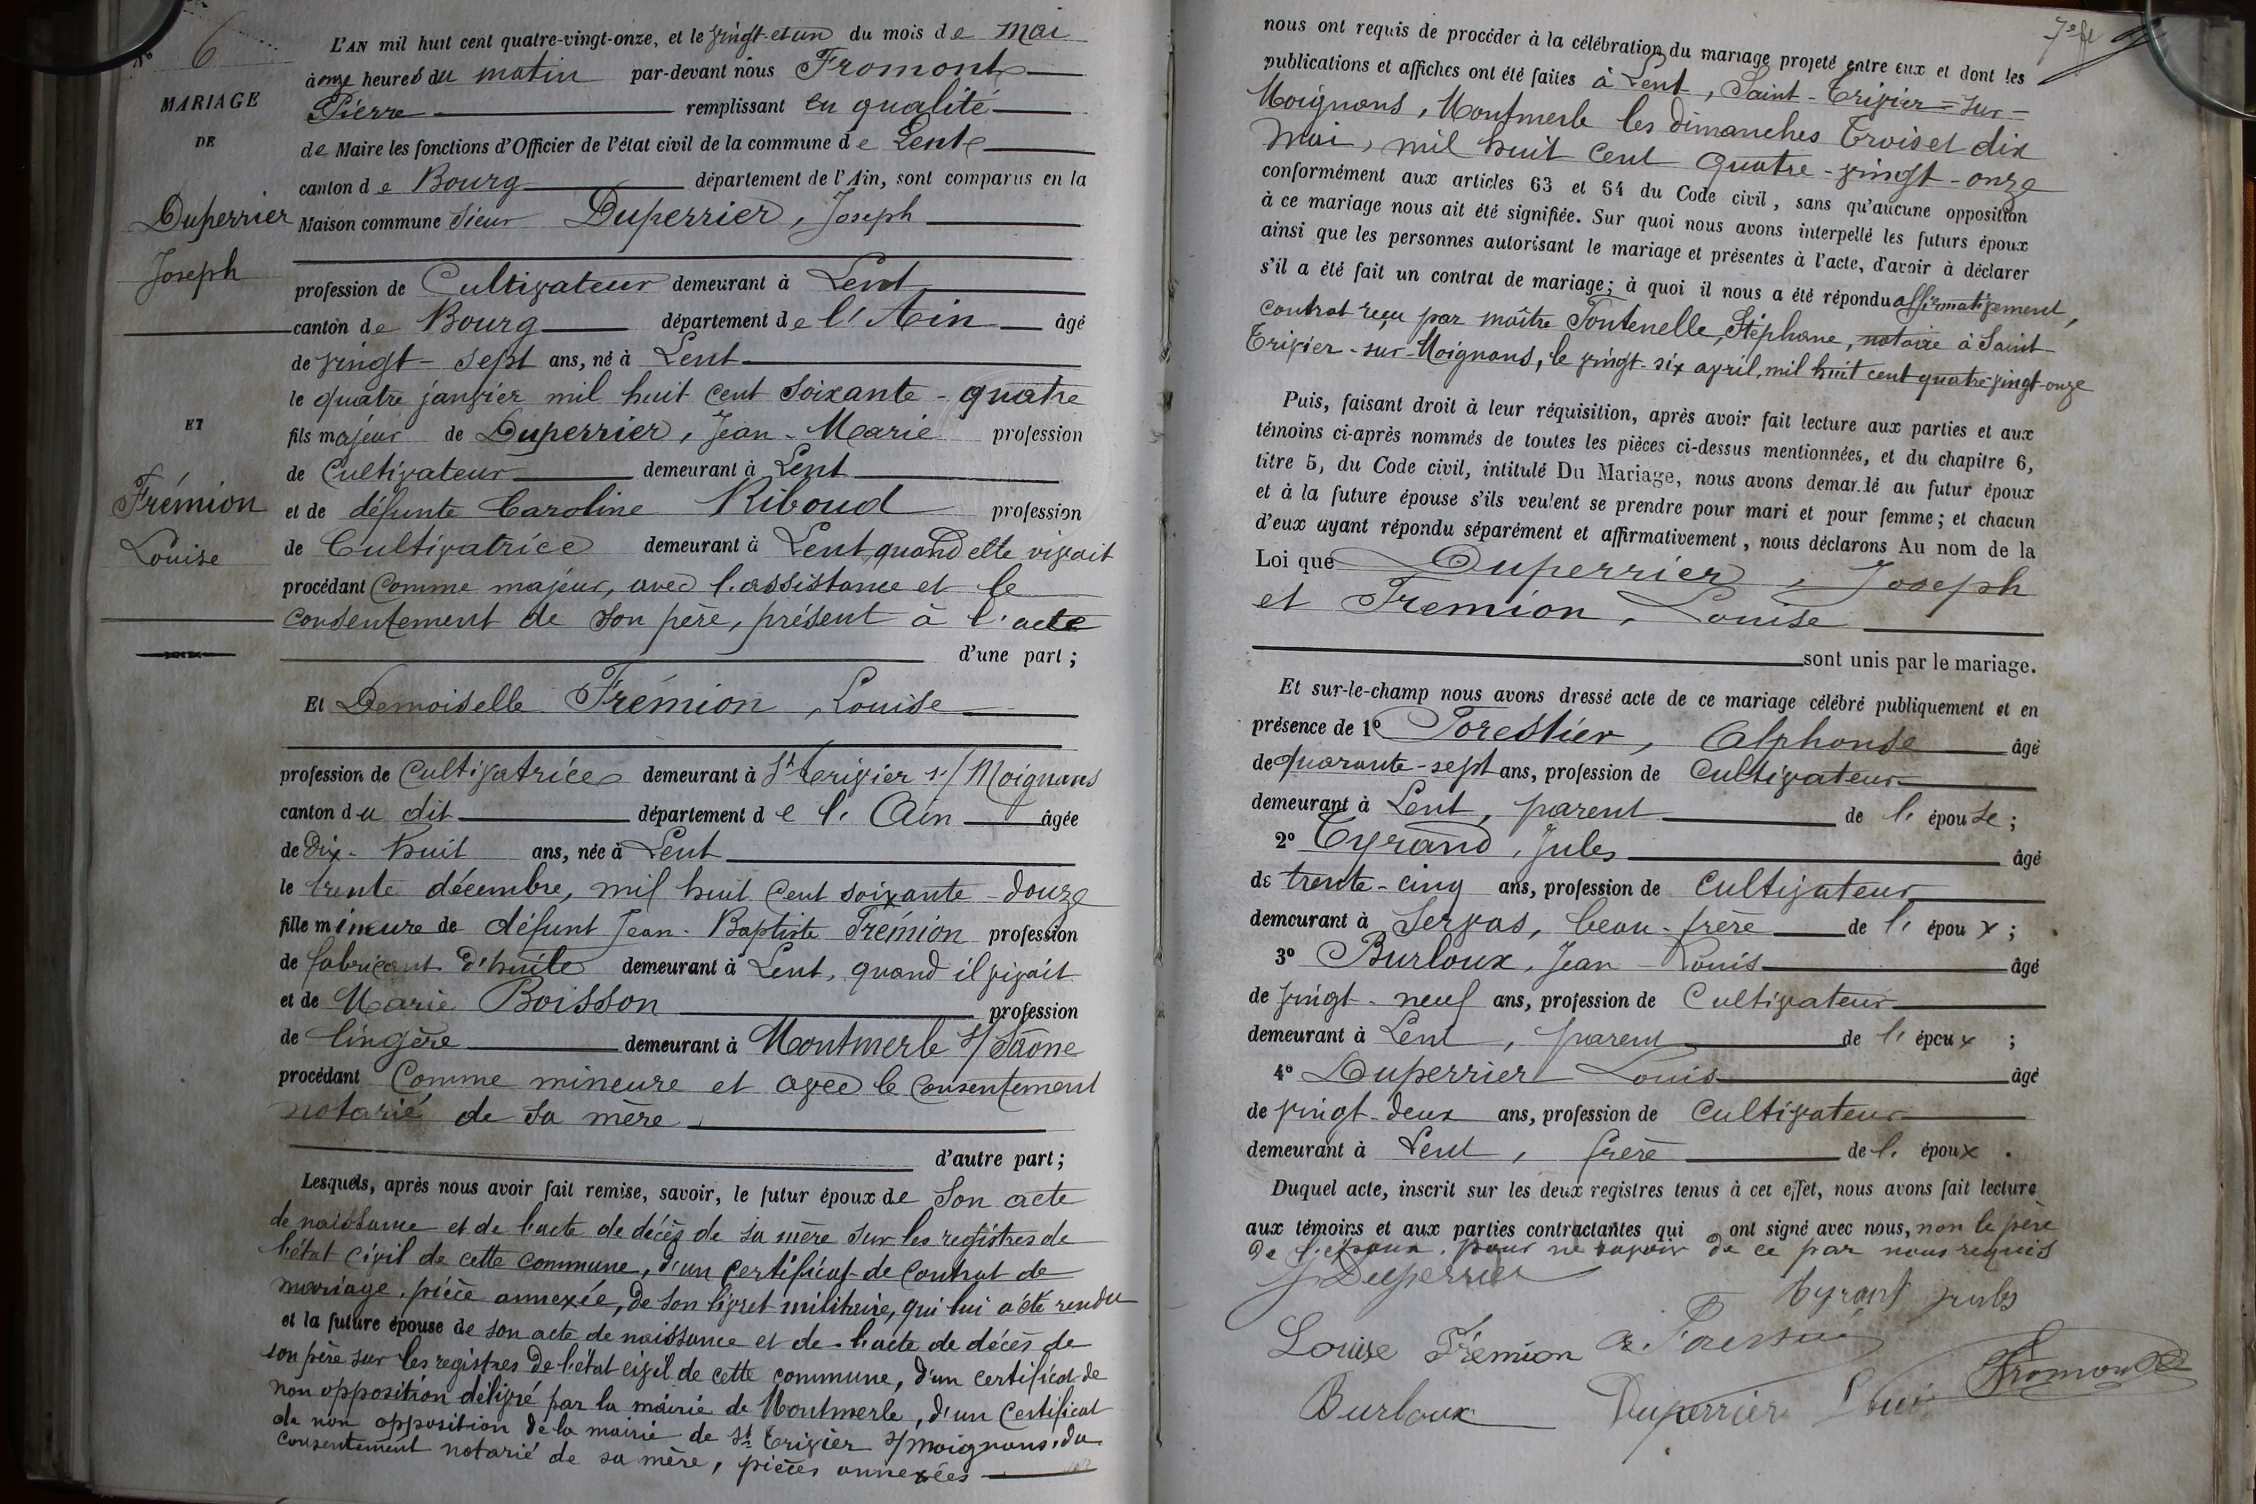 N° 6
MARIAGE
DE
Duperrier
Joseph
ET
Frémion
Louise
L'AN mil huit cent quatre-vingt-onze, et le vingt-et-un du mois de Mai
à onze heures du matin par-devant nous Fromont
Pierre remplissant en qualité
de Maire les fonctions d'Officier de l'état civil de la commune de Lent
canton de Bourg département de l'Ain, sont comparus en la
Maison commune Sieur Duperrier, Joseph
profession de Cultivateur demeurant à Lent
canton de Bourg département de l'Ain âgé
de vingt-sept ans, né à Lent
le quatre janvier mil huit cent soixante-quatre
fils majeur de Duperrier, Jean-Marie profession
de Cultivateur demeurant à Lent
et de défunte Caroline Riboud profession
de Cultivatrice demeurant à Lent, quand elle vivait
procédant comme majeur, avec l'assistance et le
consentement de son père, présent à l'acte
d'une part;
Et Demoiselle Frémion, Louise
profession de Cultivatrice demeurant à St Trivier s/ Moignans
canton du dit département de l'Ain âgée
de Dix-huit ans, née à Lent
le trente décembre, mil huit cent soixante-douze
fille mineure de défunt Jean-Baptiste Frémion profession
de fabricant d'huile demeurant à Lent, quand il vivait
et de Marie Boisson profession
de lingère demeurant à Montmerle s/ Saône
procédant Comme mineure et avec le consentement
notarié de sa mère
d'autre part;
Lesquels, après nous avoir fait remise, savoir, le futur époux de son acte
de naissance et de l'acte de décès de sa mère sur les registres de
l'état civil de cette commune, d'un certificat de contrat de
mariage, pièce annexée, de son livret militaire, qui lui a été rendu
et la future épouse de son acte de naissance et de l'acte de décès de
son père sur les registres de l'état civil de cette commune, d'un certificat de
non opposition délivré par la mairie de Montmerle, d'un Certificat
de non opposition de la mairie de St Trivier s/ moignans, du
consentement notarié de sa mère, pièces annexées
nous ont requis de procéder à la célébration du mariage projeté entre eux et dont les
publications et affiches ont été faites à Lent, Saint-Trivier-sur-
Moignans, Montmerle les dimanches trois et dix
mai, mil huit cent quatre-vingt-onze
conformément aux articles 63 et 64 du Code civil, sans qu'aucune opposition
à ce mariage nous ait été signifiée. Sur quoi nous avons interpellé les futurs époux
ainsi que les personnes autorisant le mariage et présentes à l'acte, d'avoir à déclarer
s'il a été fait un contrat de mariage; à quoi il nous a été répondu affirmativement,
contrat reçu par maître Fontenelle, Stéphane, notaire à Saint
Trivier-sur-Moignans, le vingt-six avril, mil huit cent quatre-vingt-onze
Puis, faisant droit à leur réquisition, après avoir fait lecture aux parties et aux
témoins ci-après nommés de toutes les pièces ci-dessus mentionnées, et du chapitre 6,
titre 5, du Code civil, intitulé Du Mariage, nous avons demandé au futur époux
et à la future épouse s'ils veulent se prendre pour mari et pour femme; et chacun
d'eux ayant répondu séparément et affirmativement, nous déclarons Au nom de la
Loi que Duperrier, Joseph
et Fremion, Louise
sont unis par le mariage.
Et sur-le-champ nous avons dressé acte de ce mariage célébré publiquement et en
présence de 1° Forestier, Alphonse âgé
de quarante-sept ans, profession de Cultivateur
demeurant à Lent, parent de l'épouse;
2° Tyrand, Jules âgé
de trente-cinq ans, profession de cultivateur
demeurant à Servas, beau-frère de l'époux;
3° Burloux, Jean-Louis âgé
de vingt-neuf ans, profession de Cultivateur
demeurant à Lent, parent de l'époux;
4° Duperrier Louis âgé
de vingt-deux ans, profession de cultivateur
demeurant à Lent, frère de l'époux.
Duquel acte, inscrit sur les deux registres tenus à cet effet, nous avons fait lecture
aux témoins et aux parties contractantes qui ont signé avec nous, non le père
de l'époux, pour ne savoir de ce par nous requis
J Duperrier
Tyrant jules
Louise Frémion
Fromont
Burloux
Duperrier Louis